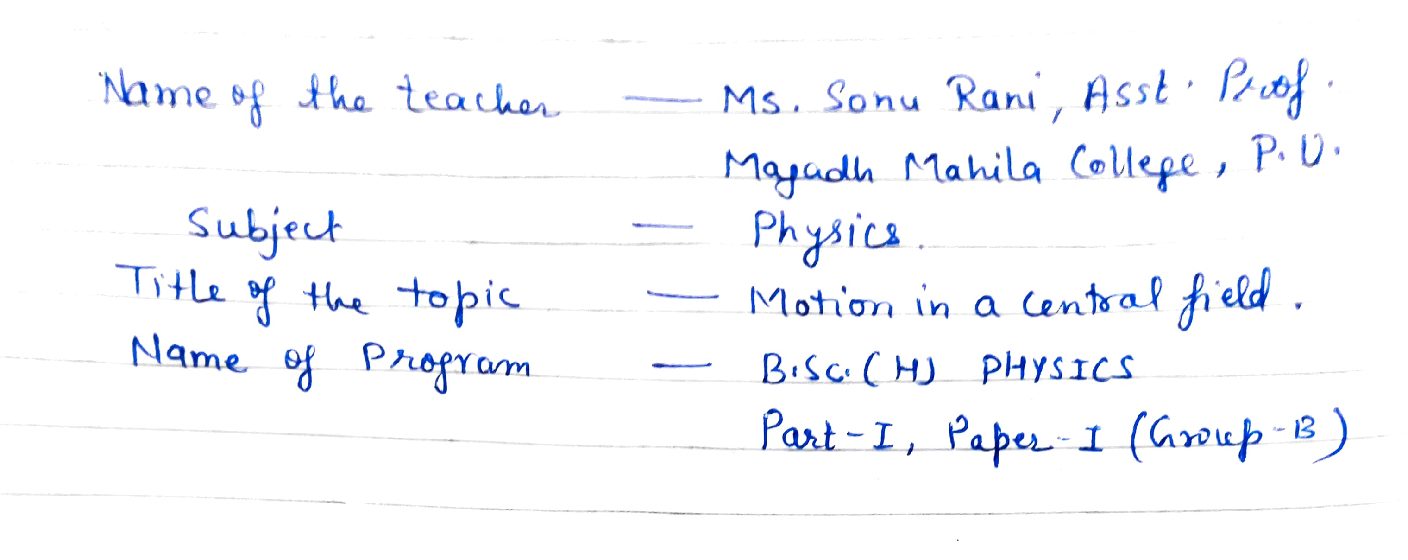 Name of the teacher — Ms. Sonu Rani, Asst. Prof.
Magadh Mahila College, P.U.
Subject — Physics.
Title of the topic — Motion in a central field.
Name of Program — B.Sc. (H) PHYSICS
Part-I, Paper-I (Group-B)